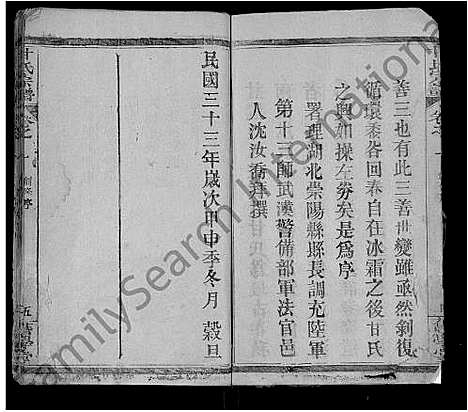 善三也有此三善世變雖亟然剝復
循環黍谷回春自在冰霜之後甘氏
之興如操左劵矣是爲序
署理湖北崇陽縣縣長調充陸軍
第十三師武漢警備部軍法官邑
人沈汝喬拜撰
民國三十三年歲次甲申季冬月 穀旦
甘氏宗譜
卷之一
五
FamilySearch International